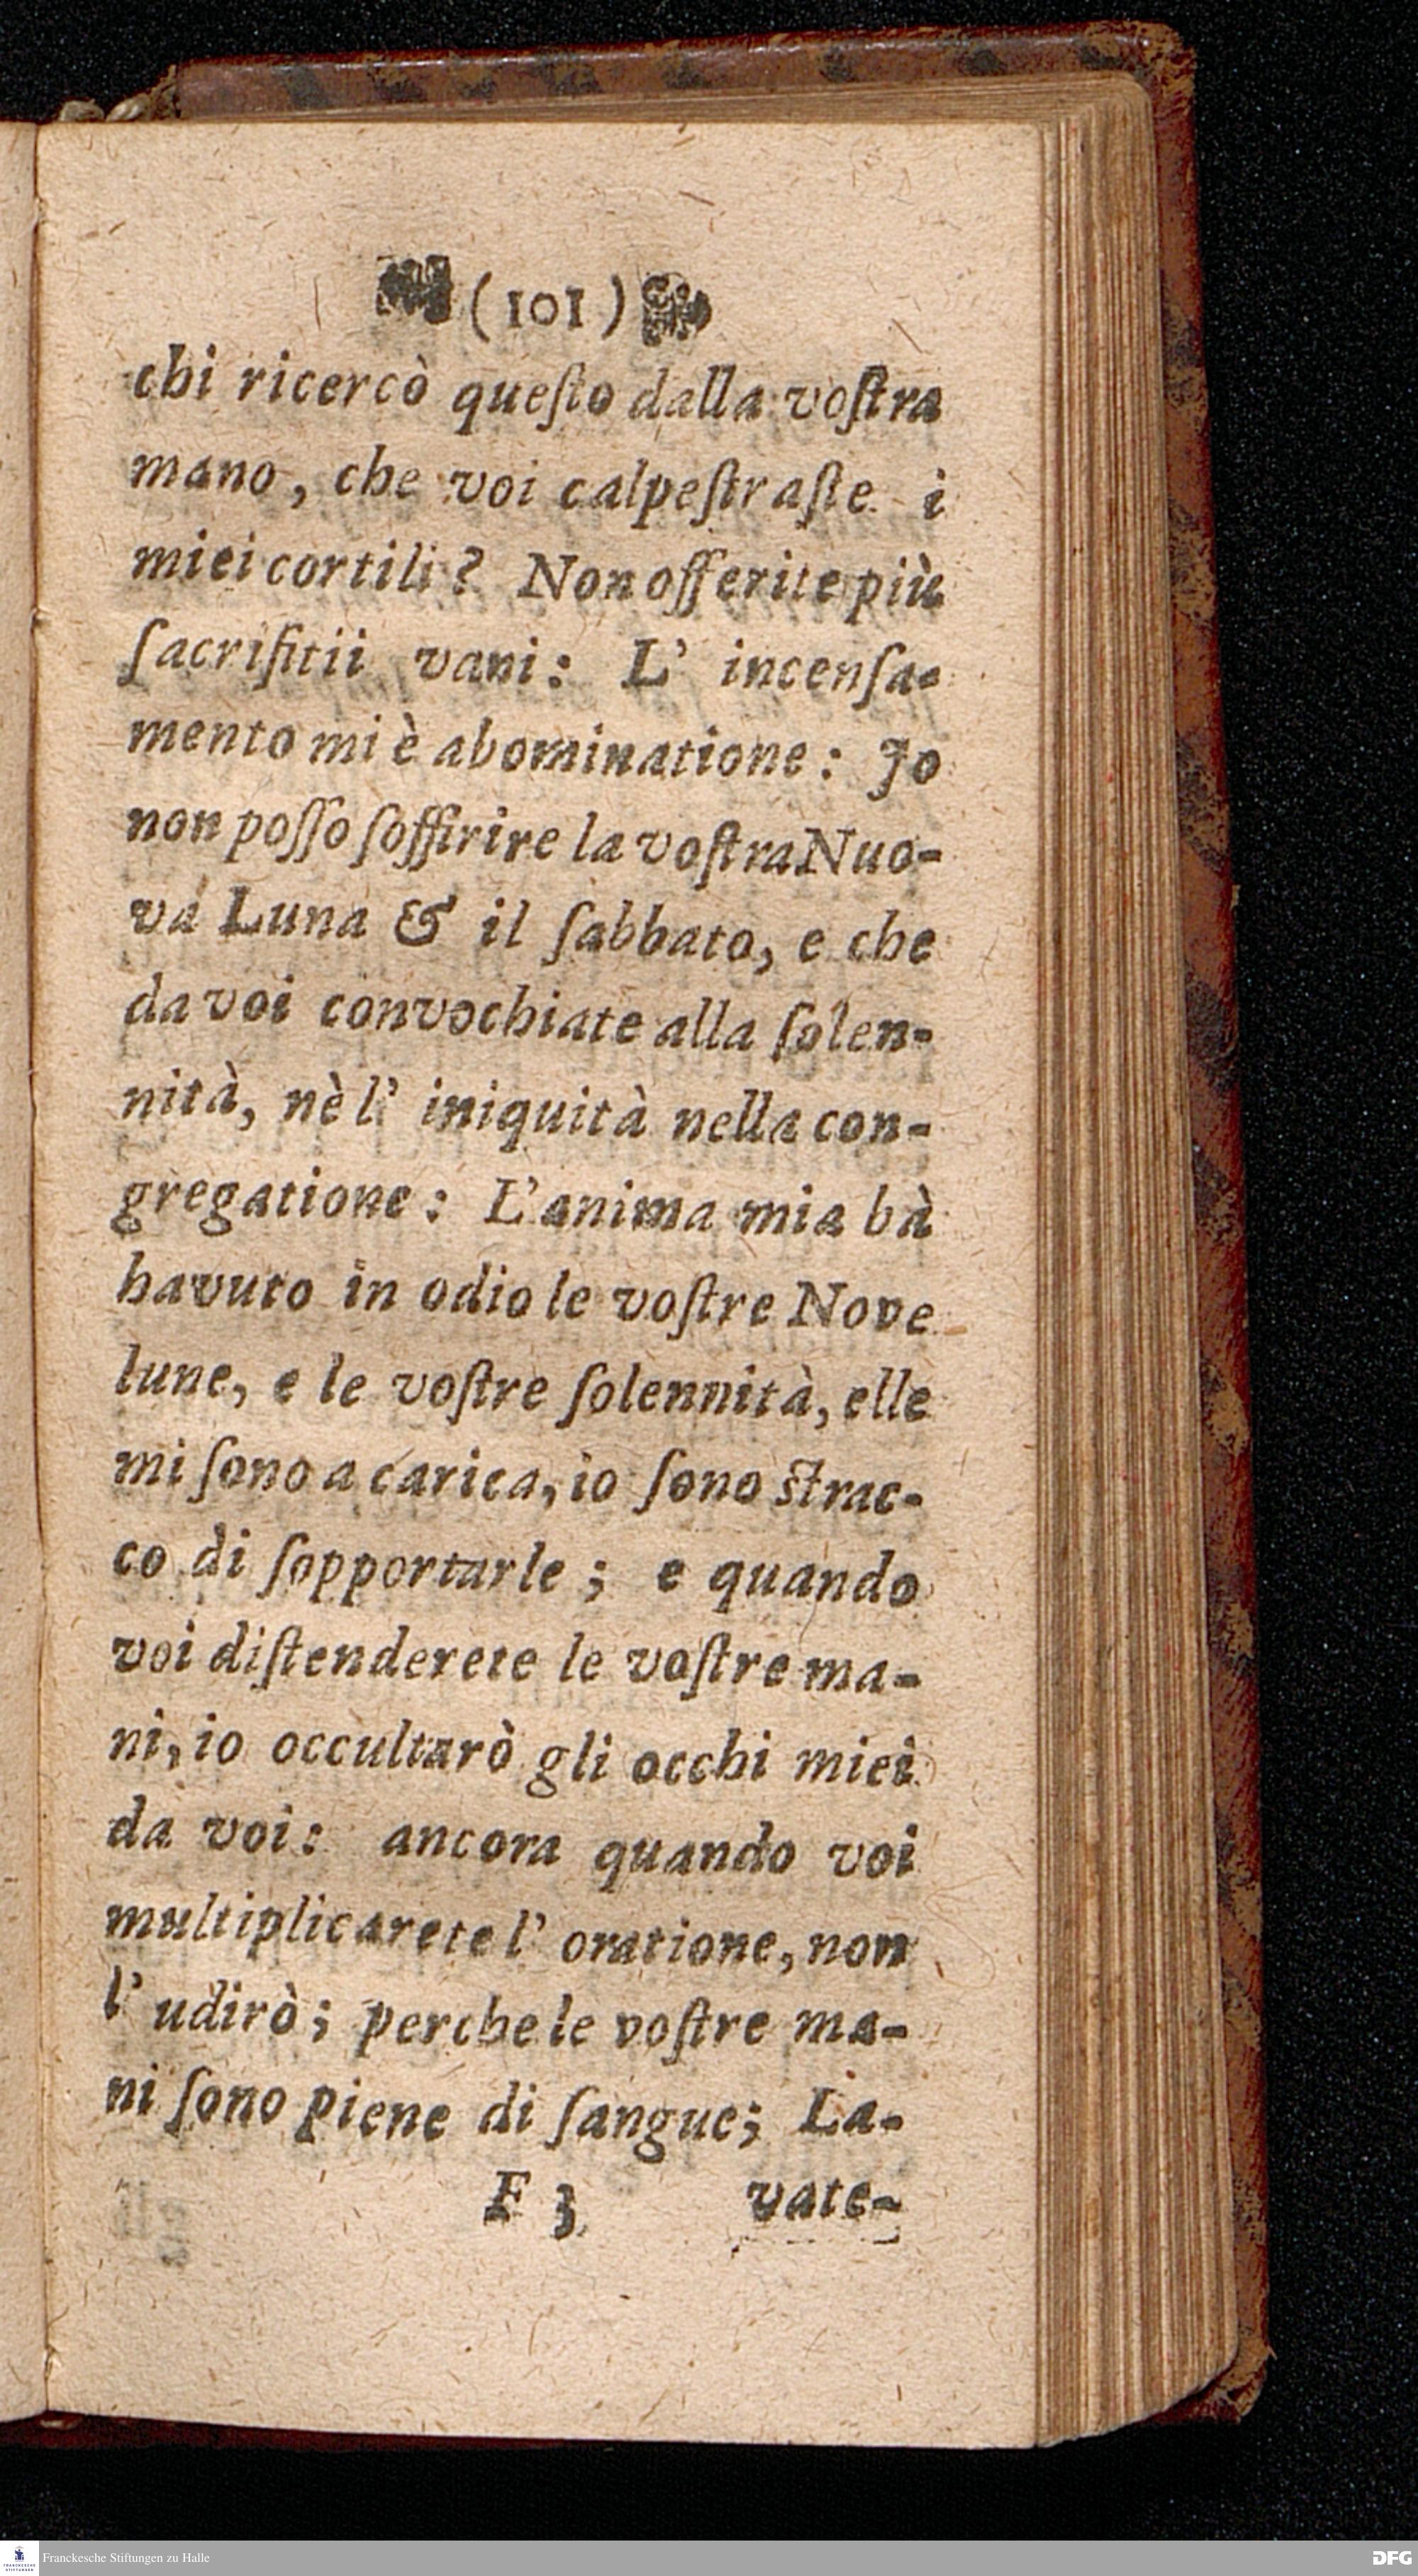 (101)
chi ricercò queſto dalla voſtra
mano, che voi calpeſtraſte i
miei cortili? Non offerite più
ſacrifitii vani: L' incenſa-
mento mi è abominatione: Jo
non poſſo ſoffirire la voſtra Nuo-
va Luna & il ſabbato, e che
da voi convochiate alla ſolen-
nità, nè l' iniquità nella con-
gregatione: L'anima mia hà
havuto in odio le voſtre Nove
lune, e le voſtre ſolennità, elle
mi ſono a carica, io ſono ſtrac-
co di ſopportarle; e quando
voi diſtenderete le voſtre ma-
ni, io occultarò gli occhi miei
da voi: ancora quando voi
multiplicarete l' oratione, non
l' udirò; perche le voſtre ma-
ni ſono piene di ſangue; La-
F 3 vate-
Franckesche Stiftungen zu Halle
DFG